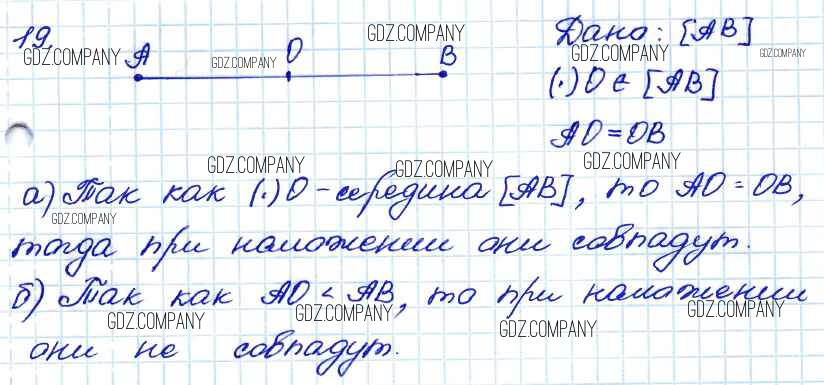 19.
A O B
Дано: [AB]
(·) O ∈ [AB]
AO = OB
а) Так как (·) O - середина [AB], то AO = OB,
тогда при наложении они совпадут.
б) Так как AO < AB, то при наложении
они не совпадут.
GDZ.COMPANY
GDZ.COMPANY
GDZ.COMPANY
GDZ.COMPANY
GDZ.COMPANY
GDZ.COMPANY
GDZ.COMPANY
GDZ.COMPANY
GDZ.COMPANY
GDZ.COMPANY
GDZ.COMPANY
GDZ.COMPANY
GDZ.COMPANY